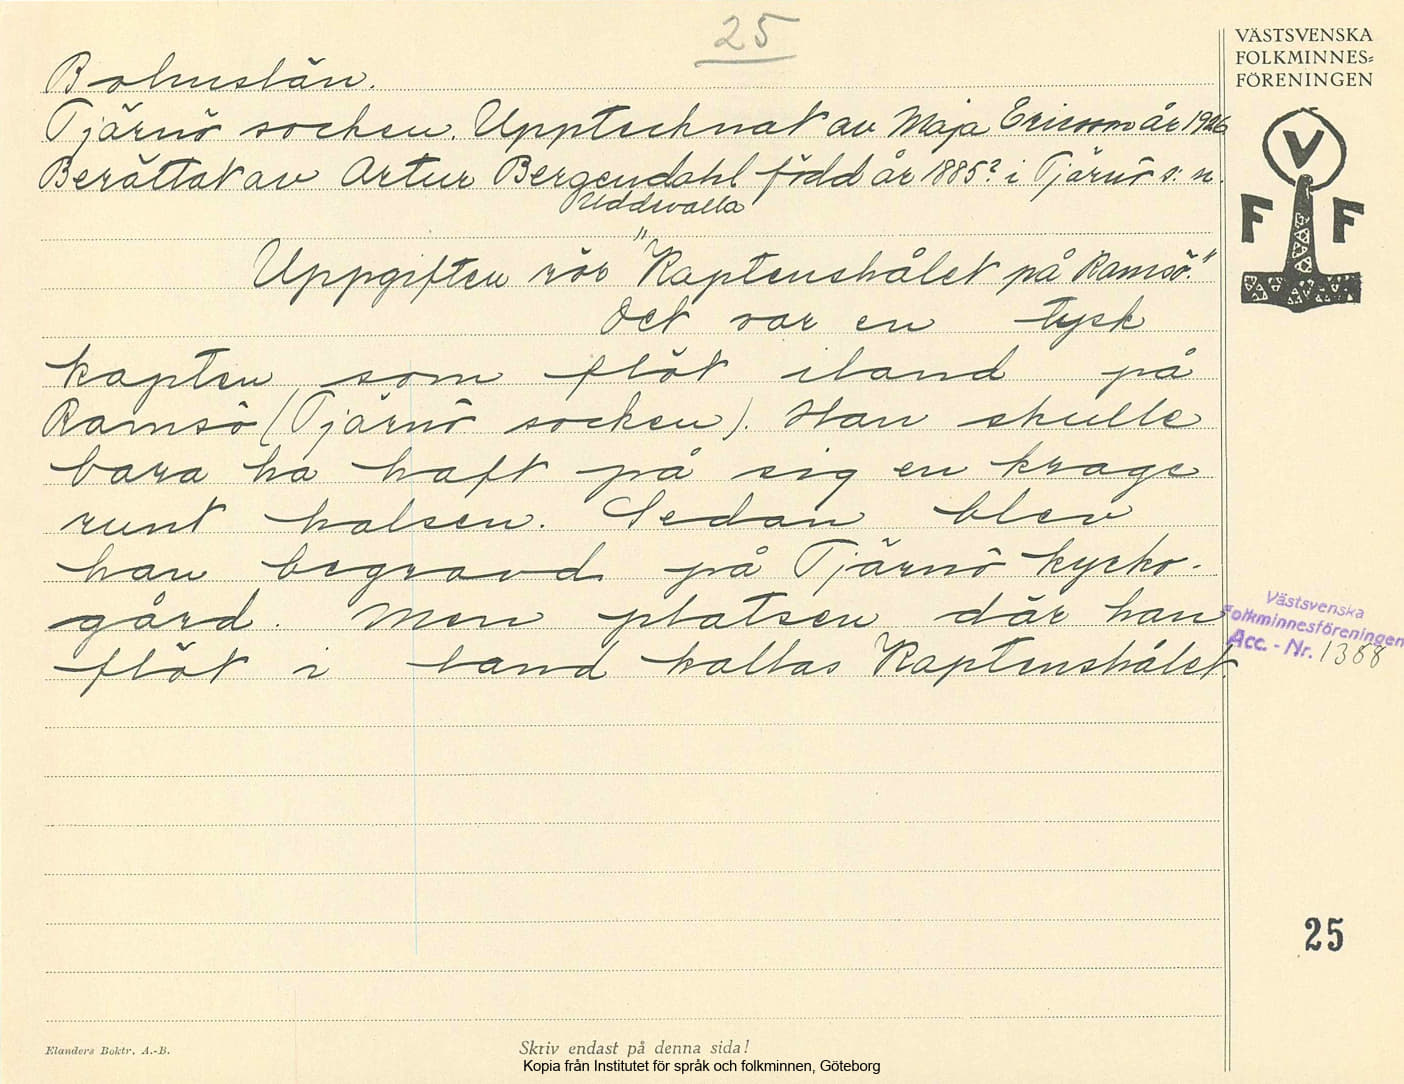 25
VÄSTSVENSKA
FOLKMINNES=
FÖRENINGEN
Bohuslän.
Tjärnö socken. Upptecknat av Maja Ericsson år 1926
Berättat av Artur Bergendahl född år 1885? i Tjärnö s:n.
Uddevalla
V
F F
Uppgiften rör "Kaptenshålet på Ramsö."
Det var en tysk
kapten, som flöt iland på
Ramsö (Tjärnö socken). Han skulle
bara ha haft på sig en krage
runt halsen. Sedan blev
han begravd på Tjärnö kyrko-
gård. Men platsen där han
flöt i land kallas Kaptenshålet.
Västsvenska
Folkminnesföreningen
Acc. - Nr. 1388
25
Elanders Boktr. A.-B.
Skriv endast på denna sida!
Kopia från Institutet för språk och folkminnen, Göteborg